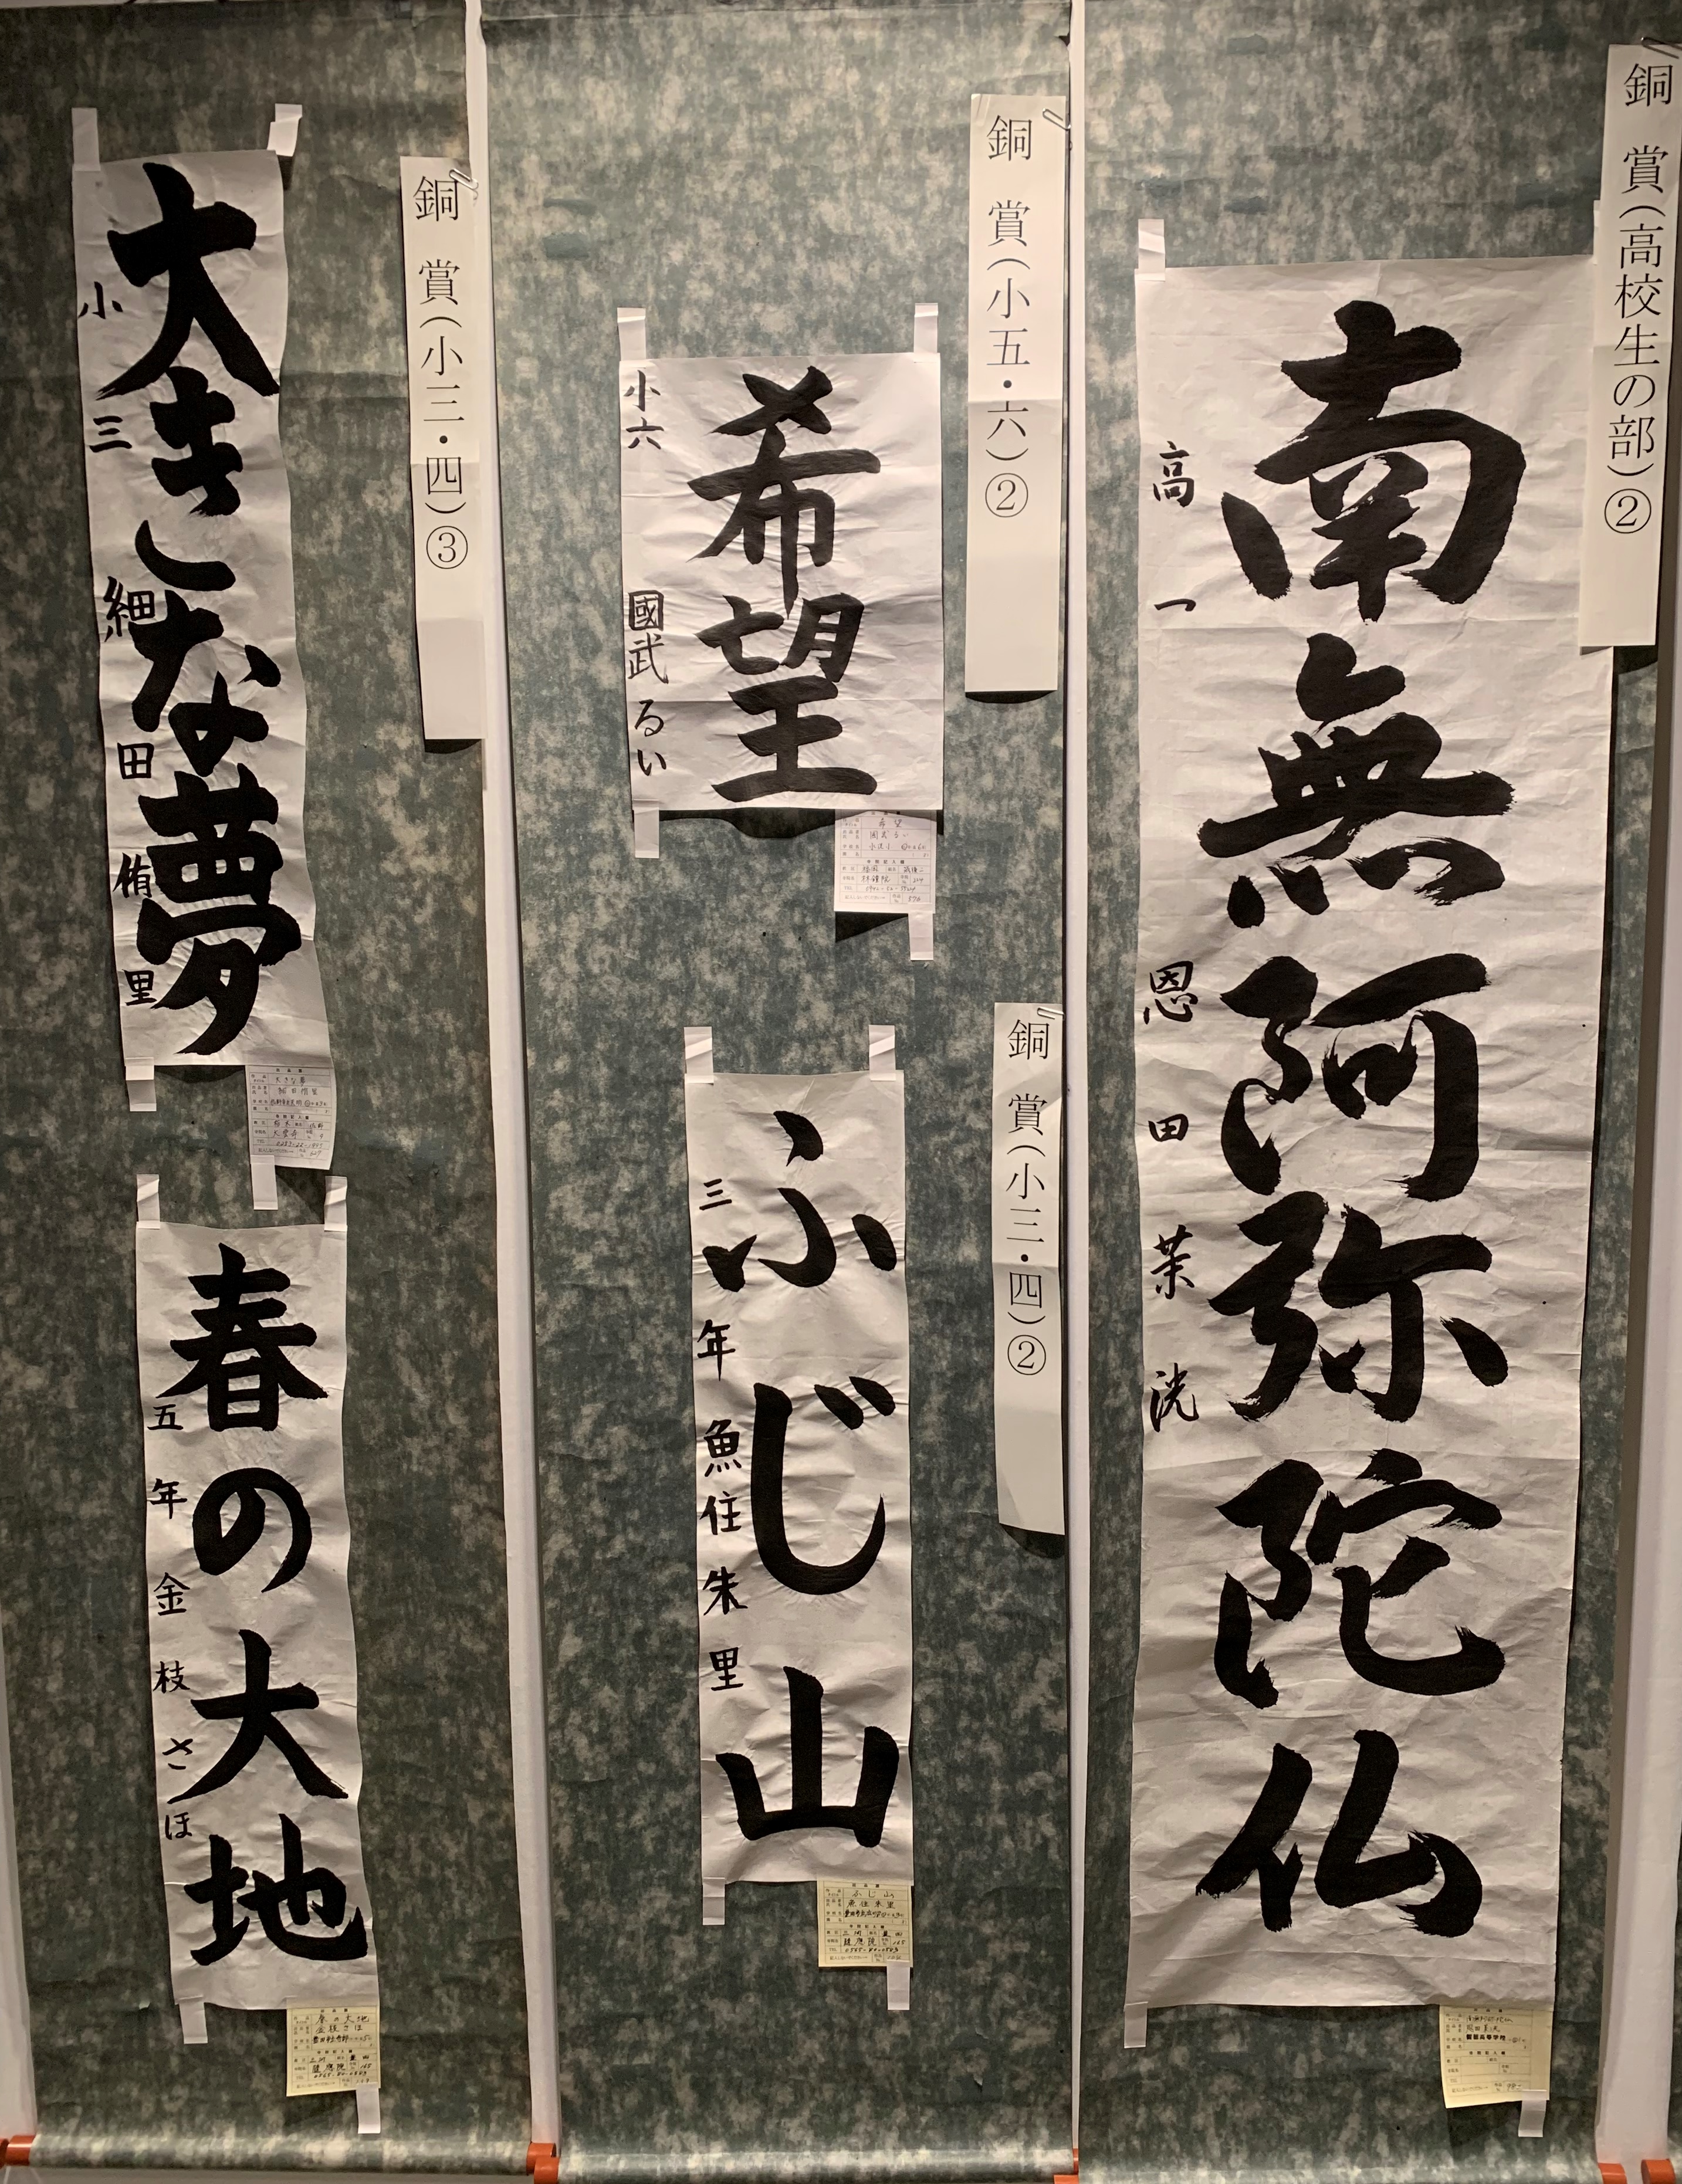 銅賞(高校生の部)②
南無阿弥陀仏
高一 恩田茉洸
銅賞(小五・六)②
希望
小六 國武るい
銅賞(小三・四)②
ふじ山
三年 魚住朱里
銅賞(小三・四)③
大きな夢
小三 細田侑里
春の大地
五年 金枝さほ